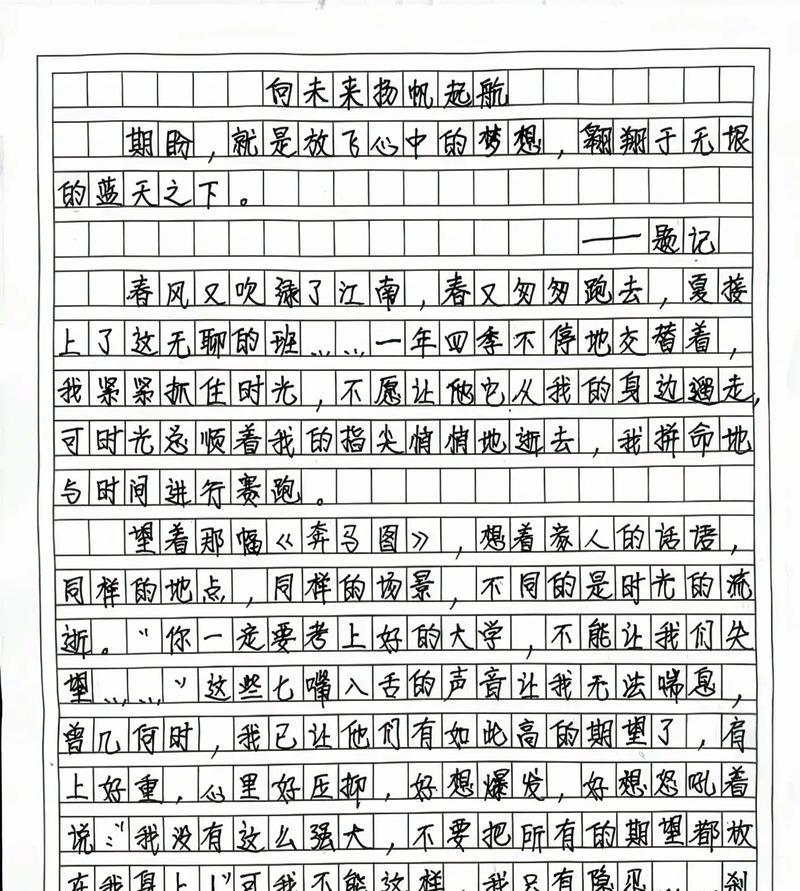 向未来扬帆起航
期盼，就是放飞心中的梦想，翱翔于无垠
的蓝天之下。
——题记
春风又吹绿了江南，春又匆匆跑去，夏接
上了这无聊的班……一年四季不停地交替着，
我紧紧抓住时光，不愿让他它从我的身边遛走，
可时光总顺着我的指尖悄悄地逝去，我拼命地
与时间进行赛跑。
望着那幅《奔马图》，想着家人的话语，
同样的地点，同样的场景，不同的是时光的流
逝。“你一定要考上好的大学，不能让我们失
望……”这些七嘴八舌的声音让我无法喘息，
曾几何时，我已让他们有如此高的期望了，肩
上好重，心里好压抑，好想爆发，好想怒吼着
说：“我没有这么强大，不要把所有的期望都放
在我身上！”可我不能这样，我只有隐忍……刹